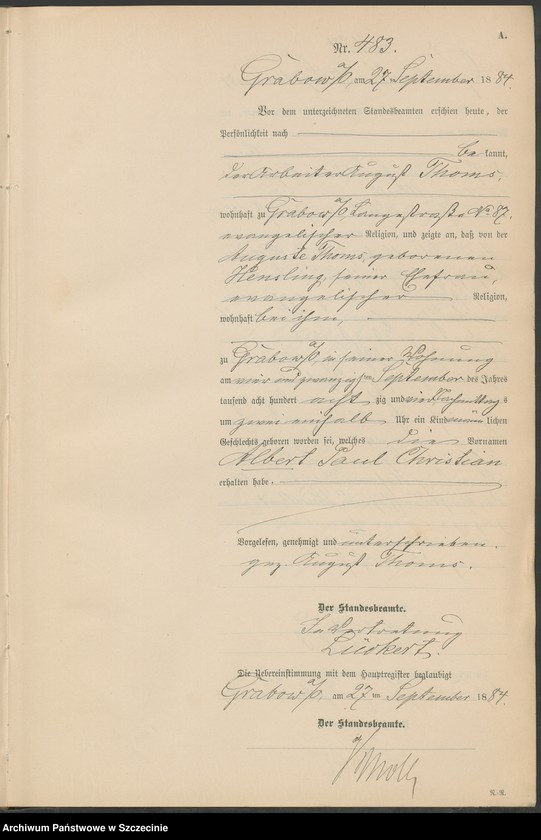 A.
Nr. 483.
Grabow a/O, am 27 ten September 1884.
Vor dem unterzeichneten Standesbeamten erschien heute, der
Persönlichkeit nach
be kannt,
der Arbeiter August Thoms,
wohnhaft zu Grabow a/O, Langestraße No 87,
evangelischer Religion, und zeigte an, daß von der
Auguste Thoms, geborenen
Hensling, seiner Ehefrau,
evangelischer Religion,
wohnhaft bei ihm,
zu Grabow a/O, in seiner Wohnung
am vier und zwanzigsten September des Jahres
tausend acht hundert acht zig und vier Nachmittags
um zwei einhalb Uhr ein Kind männ lichen
Geschlechts geboren worden sei, welches die Vornamen
Albert Paul Christian
erhalten habe.
Vorgelesen, genehmigt und unterschrieben.
gez. August Thoms.
Der Standesbeamte.
In Vertretung
Lückert.
Die Uebereinstimmung mit dem Hauptregister beglaubigt
Grabow a/O, am 27 ten September 1884.
Der Standesbeamte.
R.-R.
Archiwum Państwowe w Szczecinie